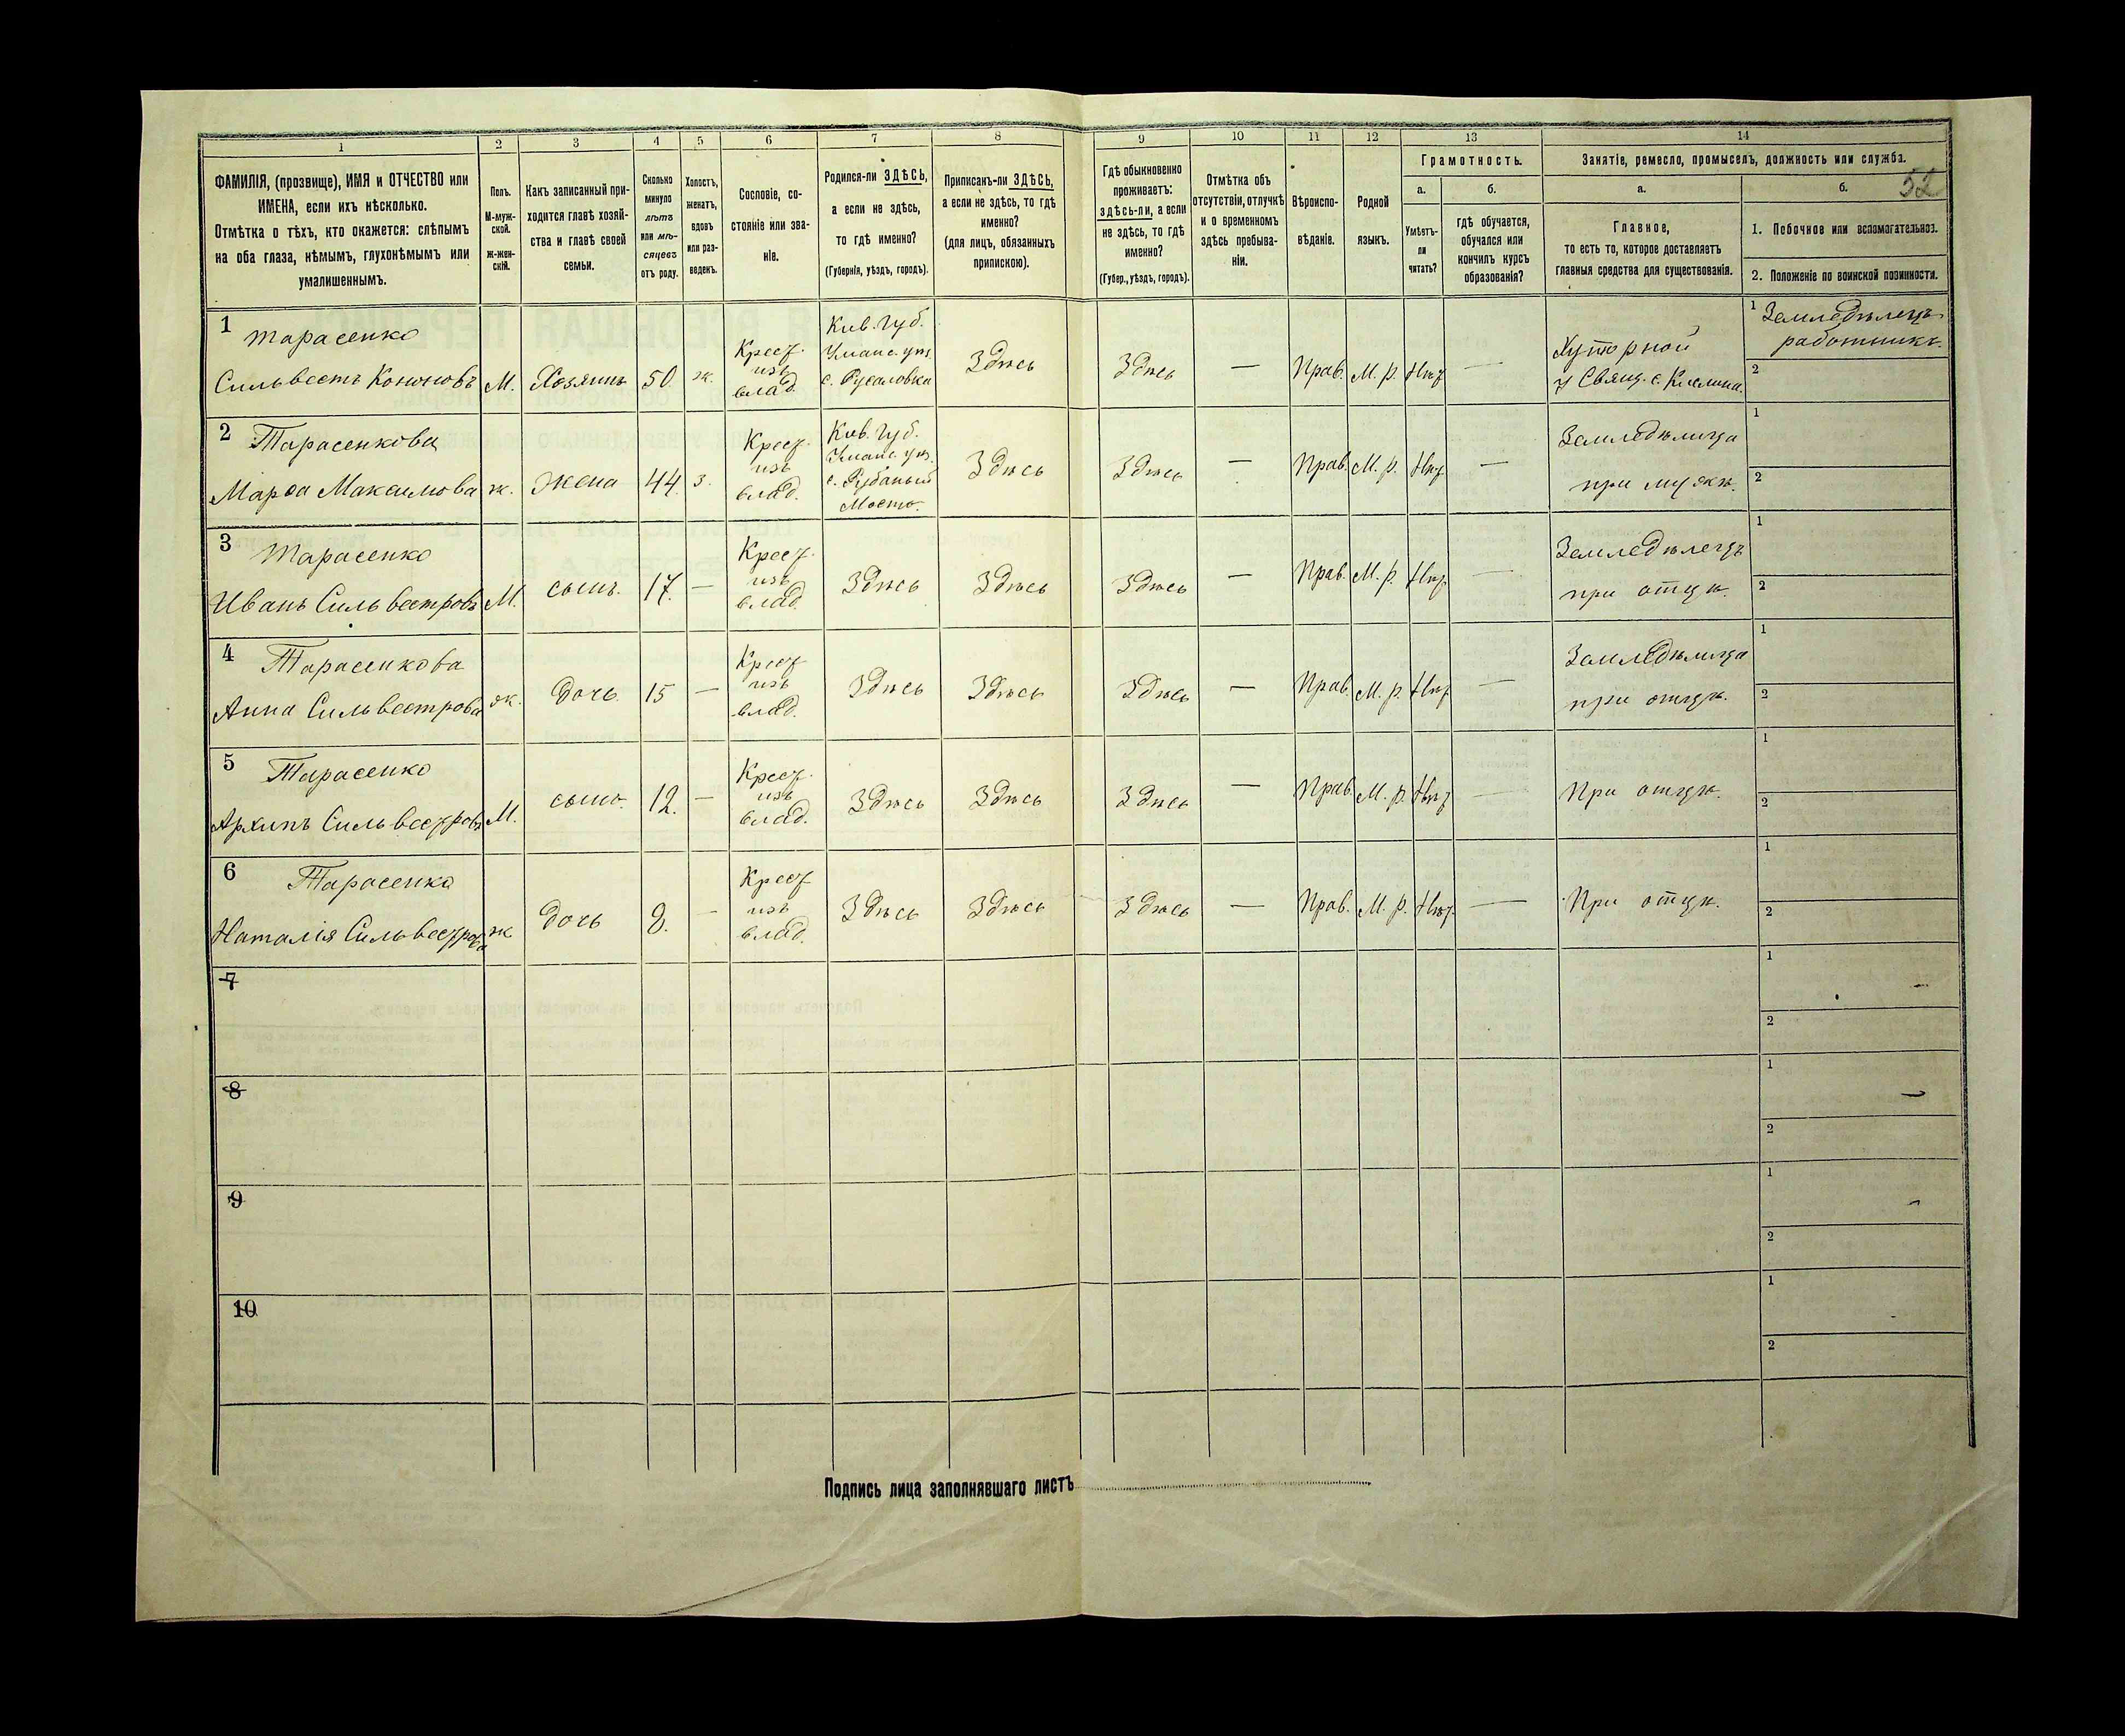 1 2 3 4 5 6 7 8 9 10 11 12 13 14
ФАМИЛІЯ, (прозвище), ИМЯ и ОТЧЕСТВО или
ИМЕНА, если ихъ нѣсколько.
Отмѣтка о тѣхъ, кто окажется: слѣпымъ
на оба глаза, нѣмымъ, глухонѣмымъ или
умалишеннымъ.
Полъ.
М-муж-
ской.
Ж-жен-
скій.
Какъ записанный при-
ходится главѣ хозяй-
ства и главѣ своей
семьи.
Сколько
минуло
лѣтъ
или мѣ-
сяцевъ
отъ роду.
Холостъ,
женатъ,
вдовъ
или раз-
веденъ.
Сословіе, со-
стояніе или зва-
ніе.
Родился-ли ЗДѢСЬ,
а если не здѣсь,
то гдѣ именно?
(Губернія, уѣздъ, городъ).
Приписанъ-ли ЗДѢСЬ,
а если не здѣсь, то гдѣ
именно?
(для лицъ, обязанныхъ
припискою).
Гдѣ обыкновенно
проживаетъ:
здѣсь-ли, а если
не здѣсь, то гдѣ
именно?
(Губер., уѣздъ, городъ).
Отмѣтка объ
отсутствіи, отлучкѣ
и о временномъ
здѣсь пребыва-
ніи.
Вѣроиспо-
вѣданіе.
Родной
языкъ.
Грамотность.
а.
Умѣетъ-
ли
читать?
б.
гдѣ обучается,
обучался или
кончилъ курсъ
образованія?
Занятіе, ремесло, промыселъ, должность или служба.
52
а.
Главное,
то есть то, которое доставляетъ
главныя средства для существованія.
б.
1. Побочное или вспомогательноэ.
2. Положеніе по воинской повинности.
1
Тарасенко
Сильвестъ Кононовъ
М.
Хозяинъ
50.
ж.
Крест.
изъ
влад.
Кив. Губ.
Уманс. уѣз.
с. Русаловка
Здѣсь
Здѣсь
—
Прав.
М. р.
Нѣт
—
Хуторной
у Свящ. с.
1 Земледѣлецъ
работникъ.
2
2
Тарасенкова
Марѳа Максимова
ж.
Жена
44.
з.
Крест.
изъ
влад.
Кив. Губ.
Уманс. уѣз.
с. Рубаный
Мостъ.
Здѣсь
Здѣсь
—
Прав.
М. р.
Нѣт
—
Земледѣлица
при мужѣ.
1
2
3
Тарасенко
Иванъ Сильвестровъ
М.
сынъ.
17.
—
Крест.
изъ
влад.
Здѣсь
Здѣсь
Здѣсь
—
Прав.
М. р.
Нѣт
—
Земледѣлецъ
при отцѣ.
1
2
4
Тарасенкова
Анна Сильвестрова
ж.
Дочь.
15
—
Крест
изъ
влад.
Здѣсь
Здѣсь
Здѣсь
—
Прав.
М. р.
Нѣт
—
Земледѣлица
при отцѣ.
1
2
5
Тарасенко
Архипъ Сильвестровъ
М.
сынъ.
12.
—
Крест.
изъ
влад.
Здѣсь
Здѣсь
Здѣсь
—
Прав.
М. р.
Нѣт
—
При отцѣ.
1
2
6
Тарасенко
Наталія Сильвестрова
ж
Дочь
8.
—
Крест
изъ
влад.
Здѣсь
Здѣсь
Здѣсь
—
Прав.
М. р.
Нѣт.
—
При отцѣ.
1
2
7
1
2
8
1
2
9
1
2
10
1
2
Подпись лица заполнявшаго листъ